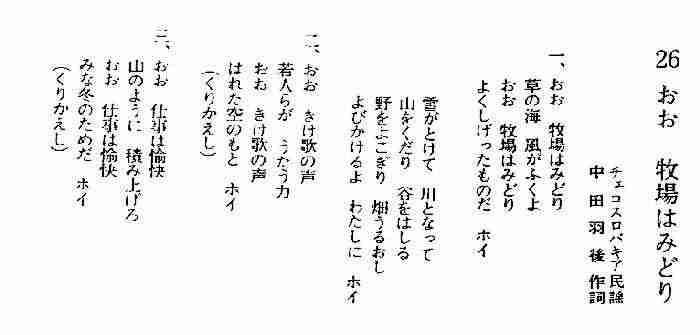 26 おお 牧場はみどり
チェコスロバキア民謡
中田羽後作詞
一、おお 牧場はみどり
草の海 風がふくよ
おお 牧場はみどり
よくしげったものだ ホイ
雪がとけて 川となって
山をくだり 谷をはしる
野をよこぎり 畑うるおし
よびかけるよ わたしに ホイ
二、おお きけ歌の声
若人らが うたう力
おお きけ歌の声
はれた空のもと ホイ
(くりかえし)
三、おお 仕事は愉快
山のように 積み上げろ
おお 仕事は愉快
みな冬のためだ ホイ
(くりかえし)